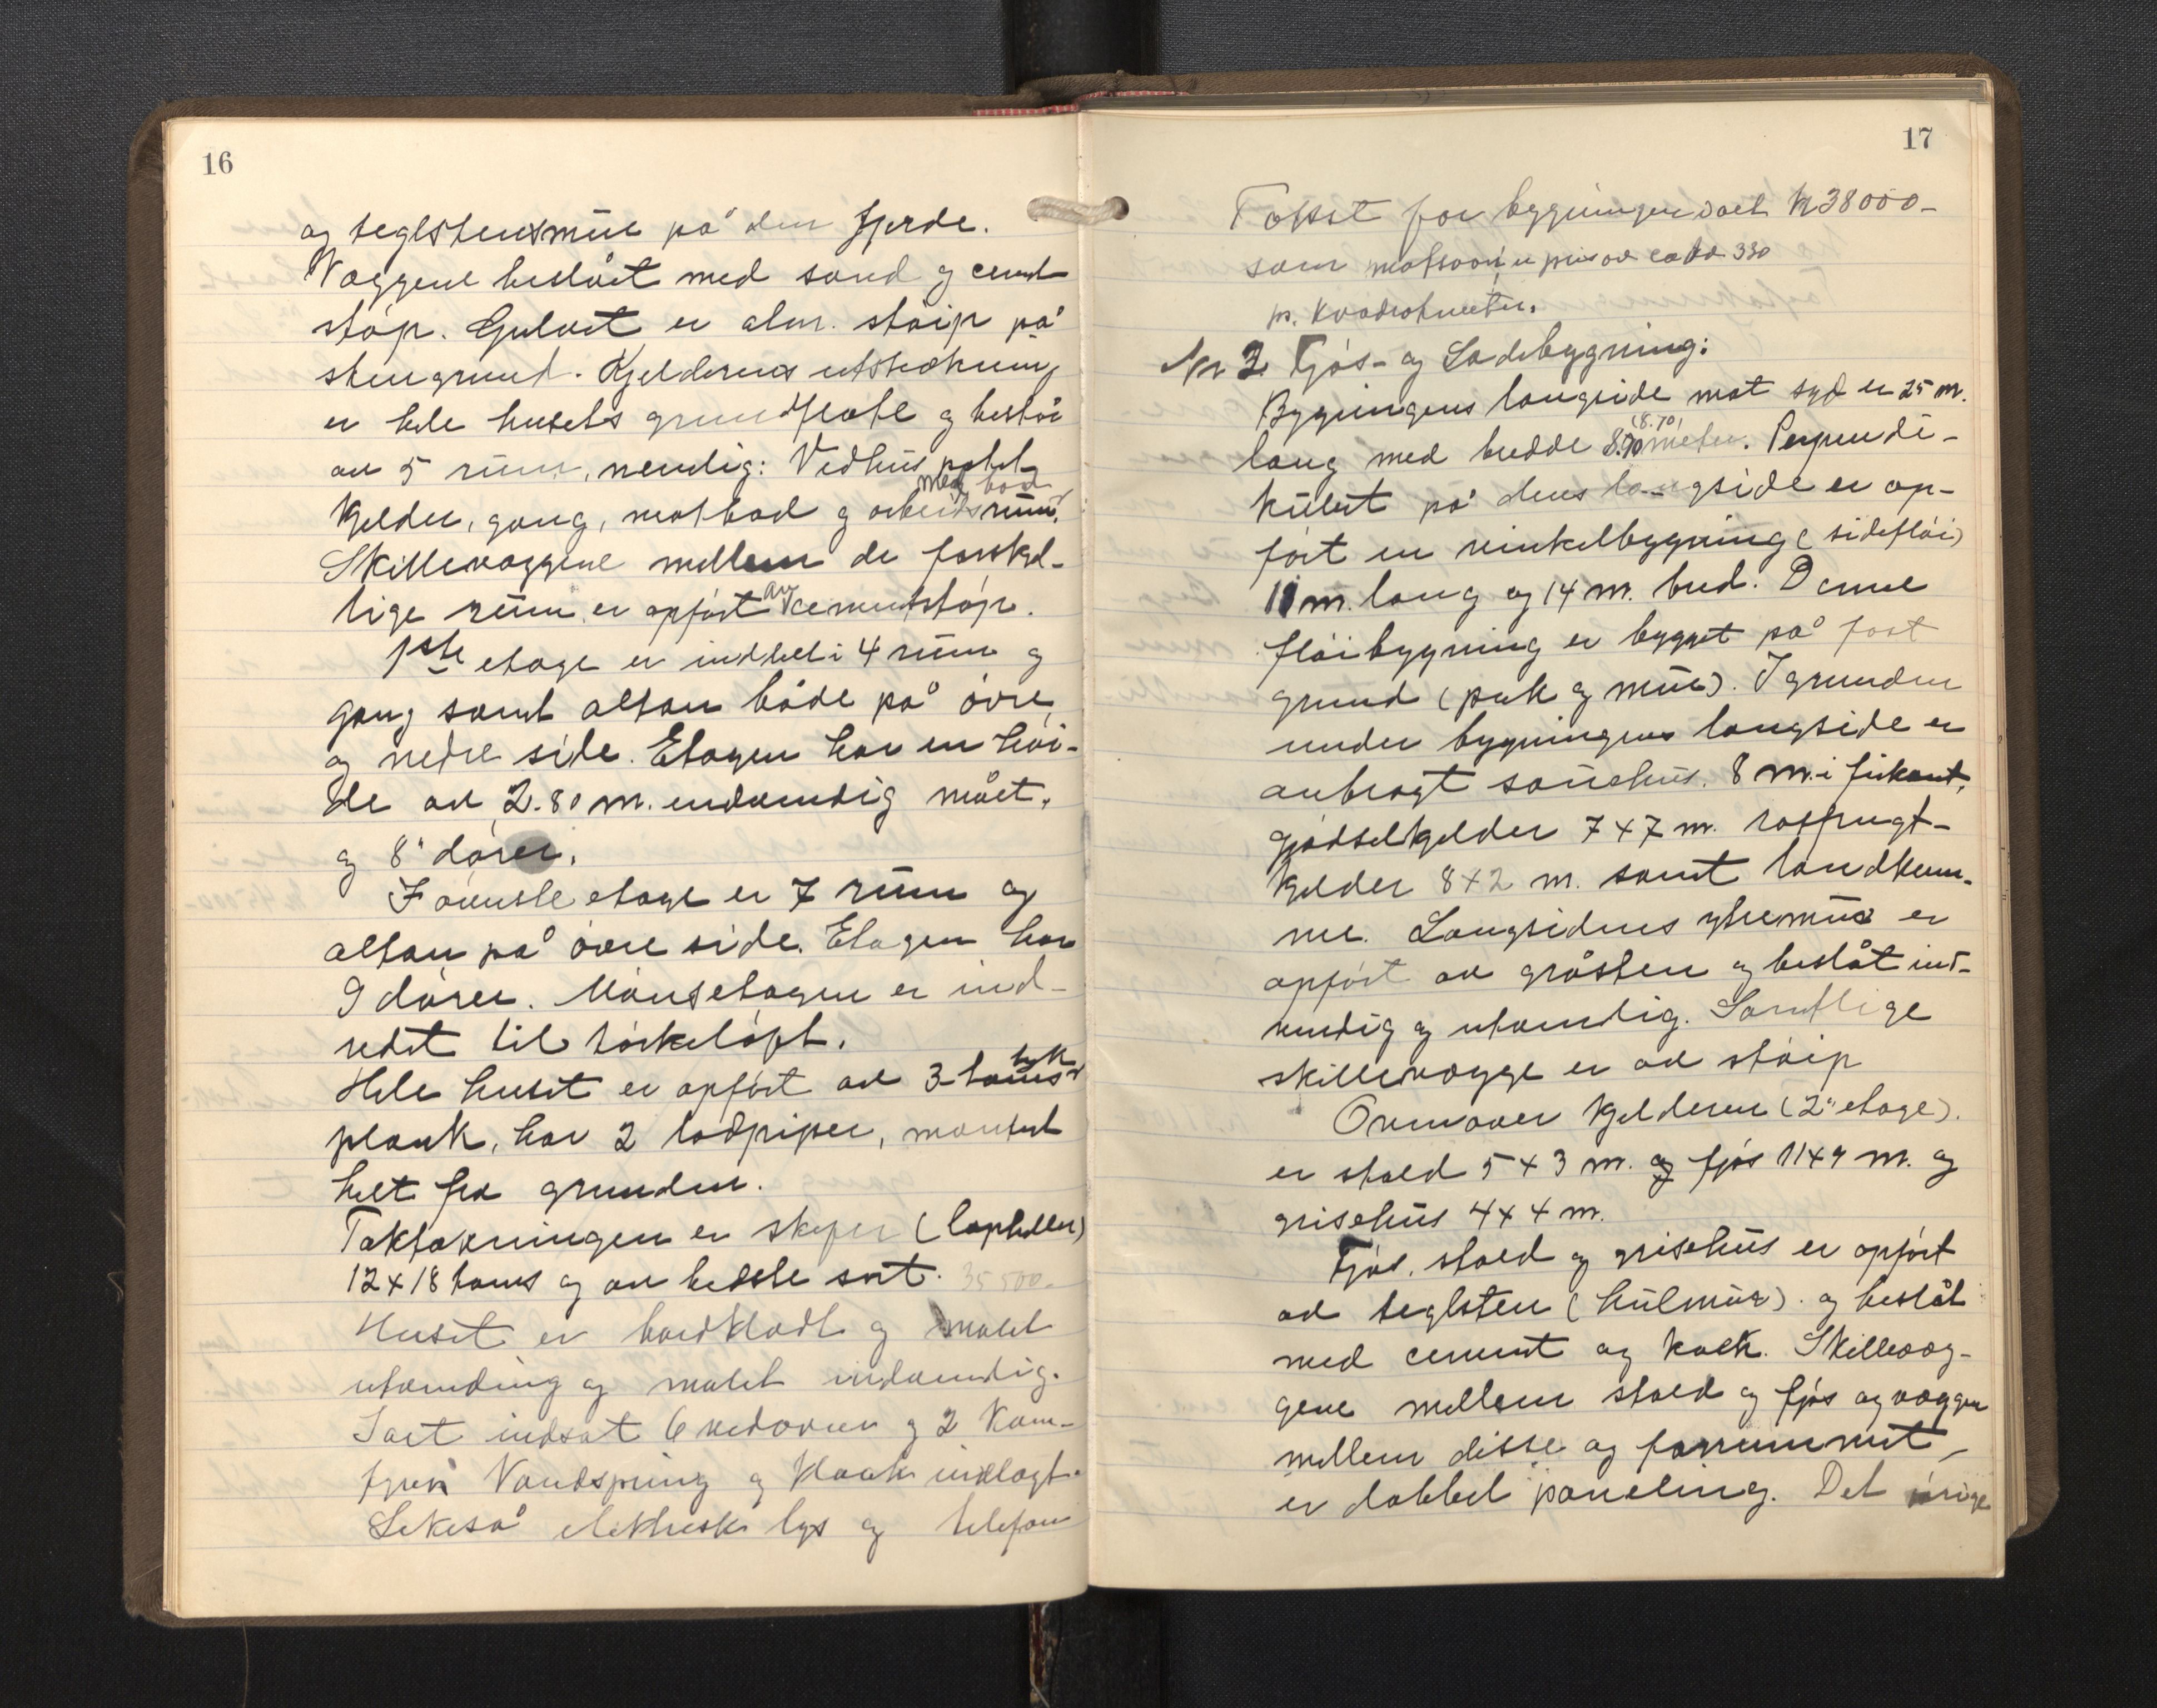 16
og teglstensmur på den fjerde.
Væggene beslåt med sand g cemt
støp. Gulvet er alm. støip på
stengrund. Kjelderens utstrækning
er hele husets grundflate g består
av 5 rum, nemlig: Vedhus, potet
med bod
kjelder, gang, matbod g arbeidsrum.
Skillevæggene mellem de forskjel-
lige rum er opført av cementstøp.
1ste etage er inddelt i 4 rum g
gang samt altan både på øvre
og nedre side. Etagen har en høi-
de av 2.80 m. indvendig målt,
g 8 dører.
I øverste etage er 7 rum og
altan på øvre side. Etagen har
9 dører. Mønsetagen er ind-
redet til tørkeloft.
Hele huset er opført av 3 toms tyk
plank, har 2 lodpiper, muret
helt fra grunden.
Taktækningen er skifer (lapheller)
12 x 18 toms g av bedste sort. 35 500.
Huset er bordklædt g malet
utvending g malet indvendig.
Samt indsat 6 vedovner g 2 Kom-
fyrer. Vandspring g kloak indlagt.
Likeså elektrisk lys g telefon
17
Takst for bygningen i alt kr 38000-
som motsvarer en pris av ca kr 330
pr. kvadratmeter.
Nr 2. Fjøs- og Ladebygning:
Bygningens langside mot syd er 25 m.
(8.70)
lang med bredde 8.70 meter. Perpendi-
kulært på dens langside er op-
ført en vinkelbygning (sidefløi)
11 m. lang og 14 m. bred. Denne
fløibygning er bygget på fast
grund (puk g mur). I grunden
under bygningens langside er
anbragt sauehus. 8 m. i firkant,
gjødselkjelder 7 x 7 m. rotfrugt-
kjelder 8 x 2 m. samt landkum-
me. Langsidens ytremur er
opført av gråsten g beslåt ind-
vendig g utvendig. Samtlige
skillevægge er av støip
Ovenover kjelderen (2" etage).
er stald 5 x 3 m. og fjøs 11 x 9 m. og
grisehus 4 x 4 m.
Fjøs, stald g grisehus er opført
av teglsten (hulmur). g beslåt
med cement og kalk. Skillevæg-
gene mellem stald g fjøs og væggen
mellem disse og forrummet,
er dobbel paneling. Det øvrige